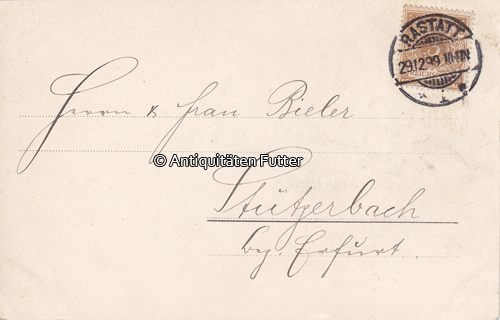 RASTATT
29.12.99.
Herrn & Frau Bieler
© Antiquitäten Futter
Stützerbach
bez. Erfurt.